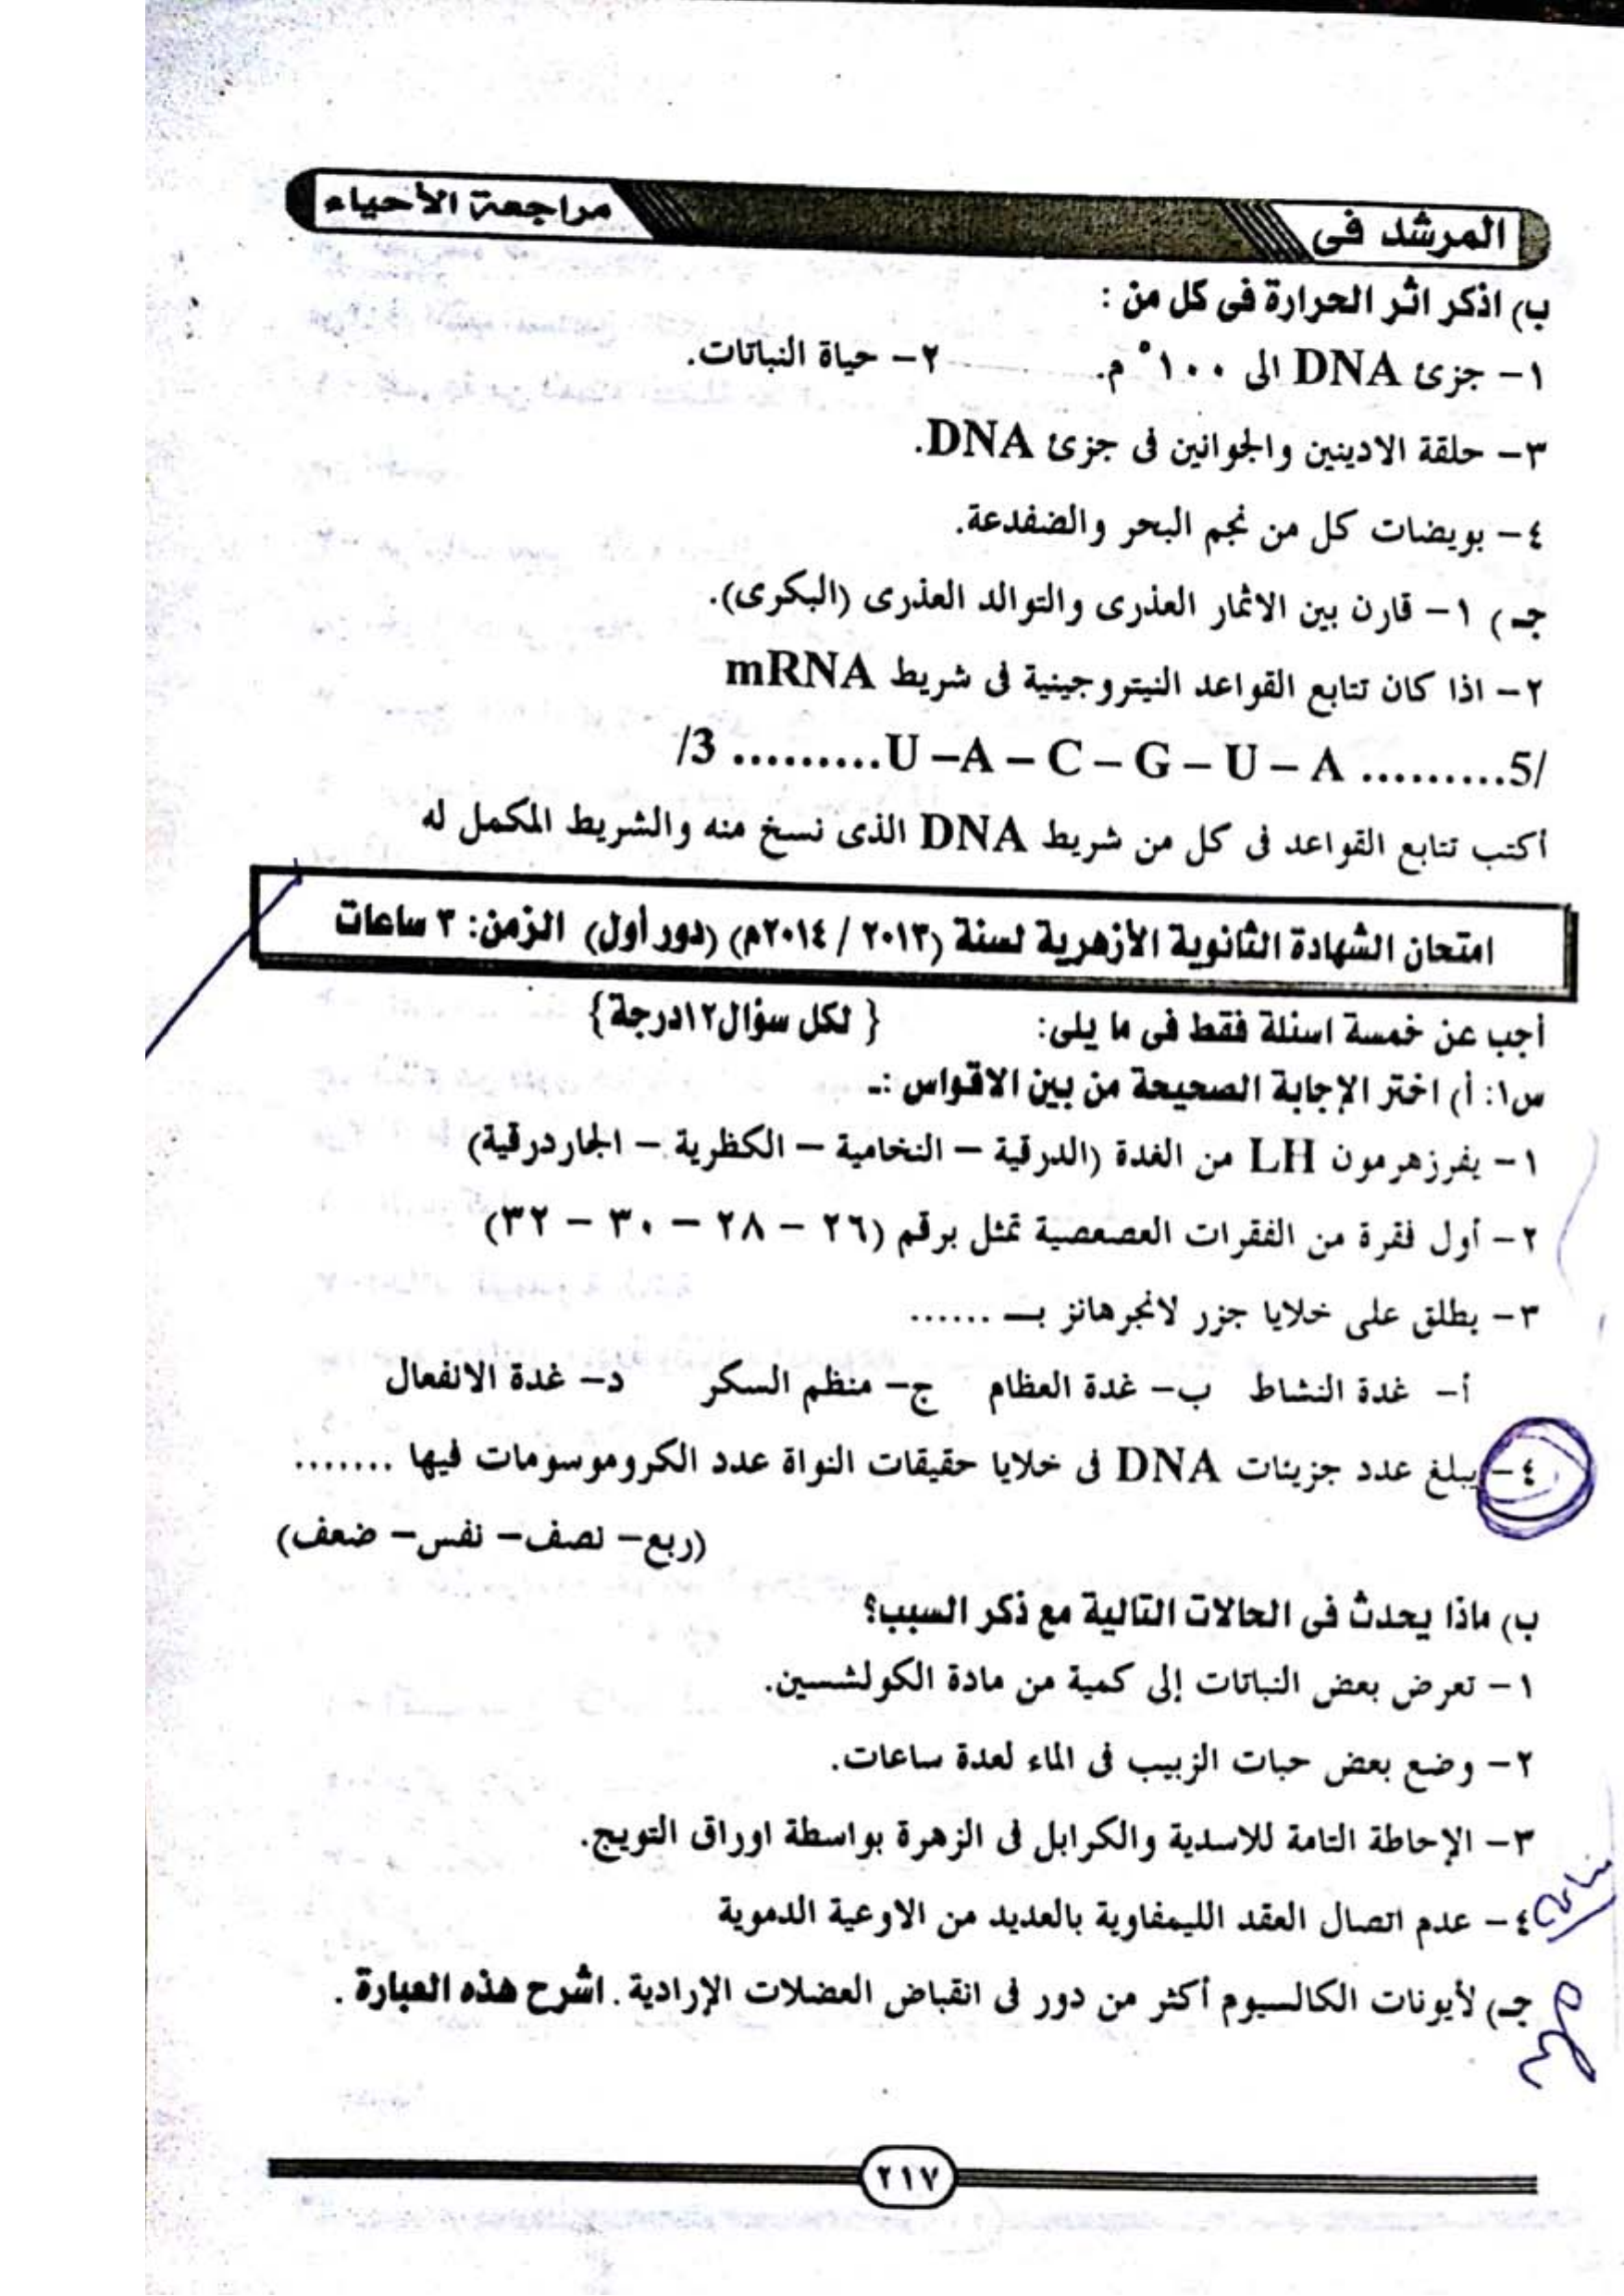 المرشد فى مراجعة الأحياء
ب) اذكر اثر الحرارة فى كل من :
١- جزئ DNA الى ١٠٠° م. ٢- حياة النباتات.
٣- حلقة الادينين والجوانين فى جزئ DNA.
٤- بويضات كل من نجم البحر والضفدعة.
جـ ) ١- قارن بين الاثمار العذرى والتوالد العذرى (البكرى).
٢- اذا كان تتابع القواعد النيتروجينية فى شريط mRNA
/3 .........U –A – C – G – U – A .........5/
أكتب تتابع القواعد فى كل من شريط DNA الذى نسخ منه والشريط المكمل له
امتحان الشهادة الثانوية الأزهرية لسنة (٢٠١٣ / ٢٠١٤م) (دور أول) الزمن: ٣ ساعات
أجب عن خمسة اسئلة فقط فى ما يلى: { لكل سؤال ١٢درجة}
س١: أ) اختر الإجابة الصحيحة من بين الاقواس :ـ
١- يفرزهرمون LH من الغدة (الدرقية – النخامية – الكظرية – الجاردرقية)
٢- أول فقرة من الفقرات العصعصية تمثل برقم (٢٦ – ٢٨ – ٣٠ – ٣٢)
٣- يطلق على خلايا جزر لانجرهانز بـــ ......
أ- غدة النشاط ب- غدة العظام ج- منظم السكر د- غدة الانفعال
٤- يبلغ عدد جزيئات DNA فى خلايا حقيقات النواة عدد الكروموسومات فيها .......
(ربع– نصف– نفس– ضعف)
ب) ماذا يحدث فى الحالات التالية مع ذكر السبب؟
١- تعرض بعض النباتات إلى كمية من مادة الكولشسين.
٢- وضع بعض حبات الزبيب فى الماء لعدة ساعات.
٣- الإحاطة التامة للاسدية والكرابل فى الزهرة بواسطة اوراق التويج.
٤- عدم اتصال العقد الليمفاوية بالعديد من الاوعية الدموية
جـ) لأيونات الكالسيوم أكثر من دور فى انقباض العضلات الإرادية. اشرح هذه العبارة .
٢١٧